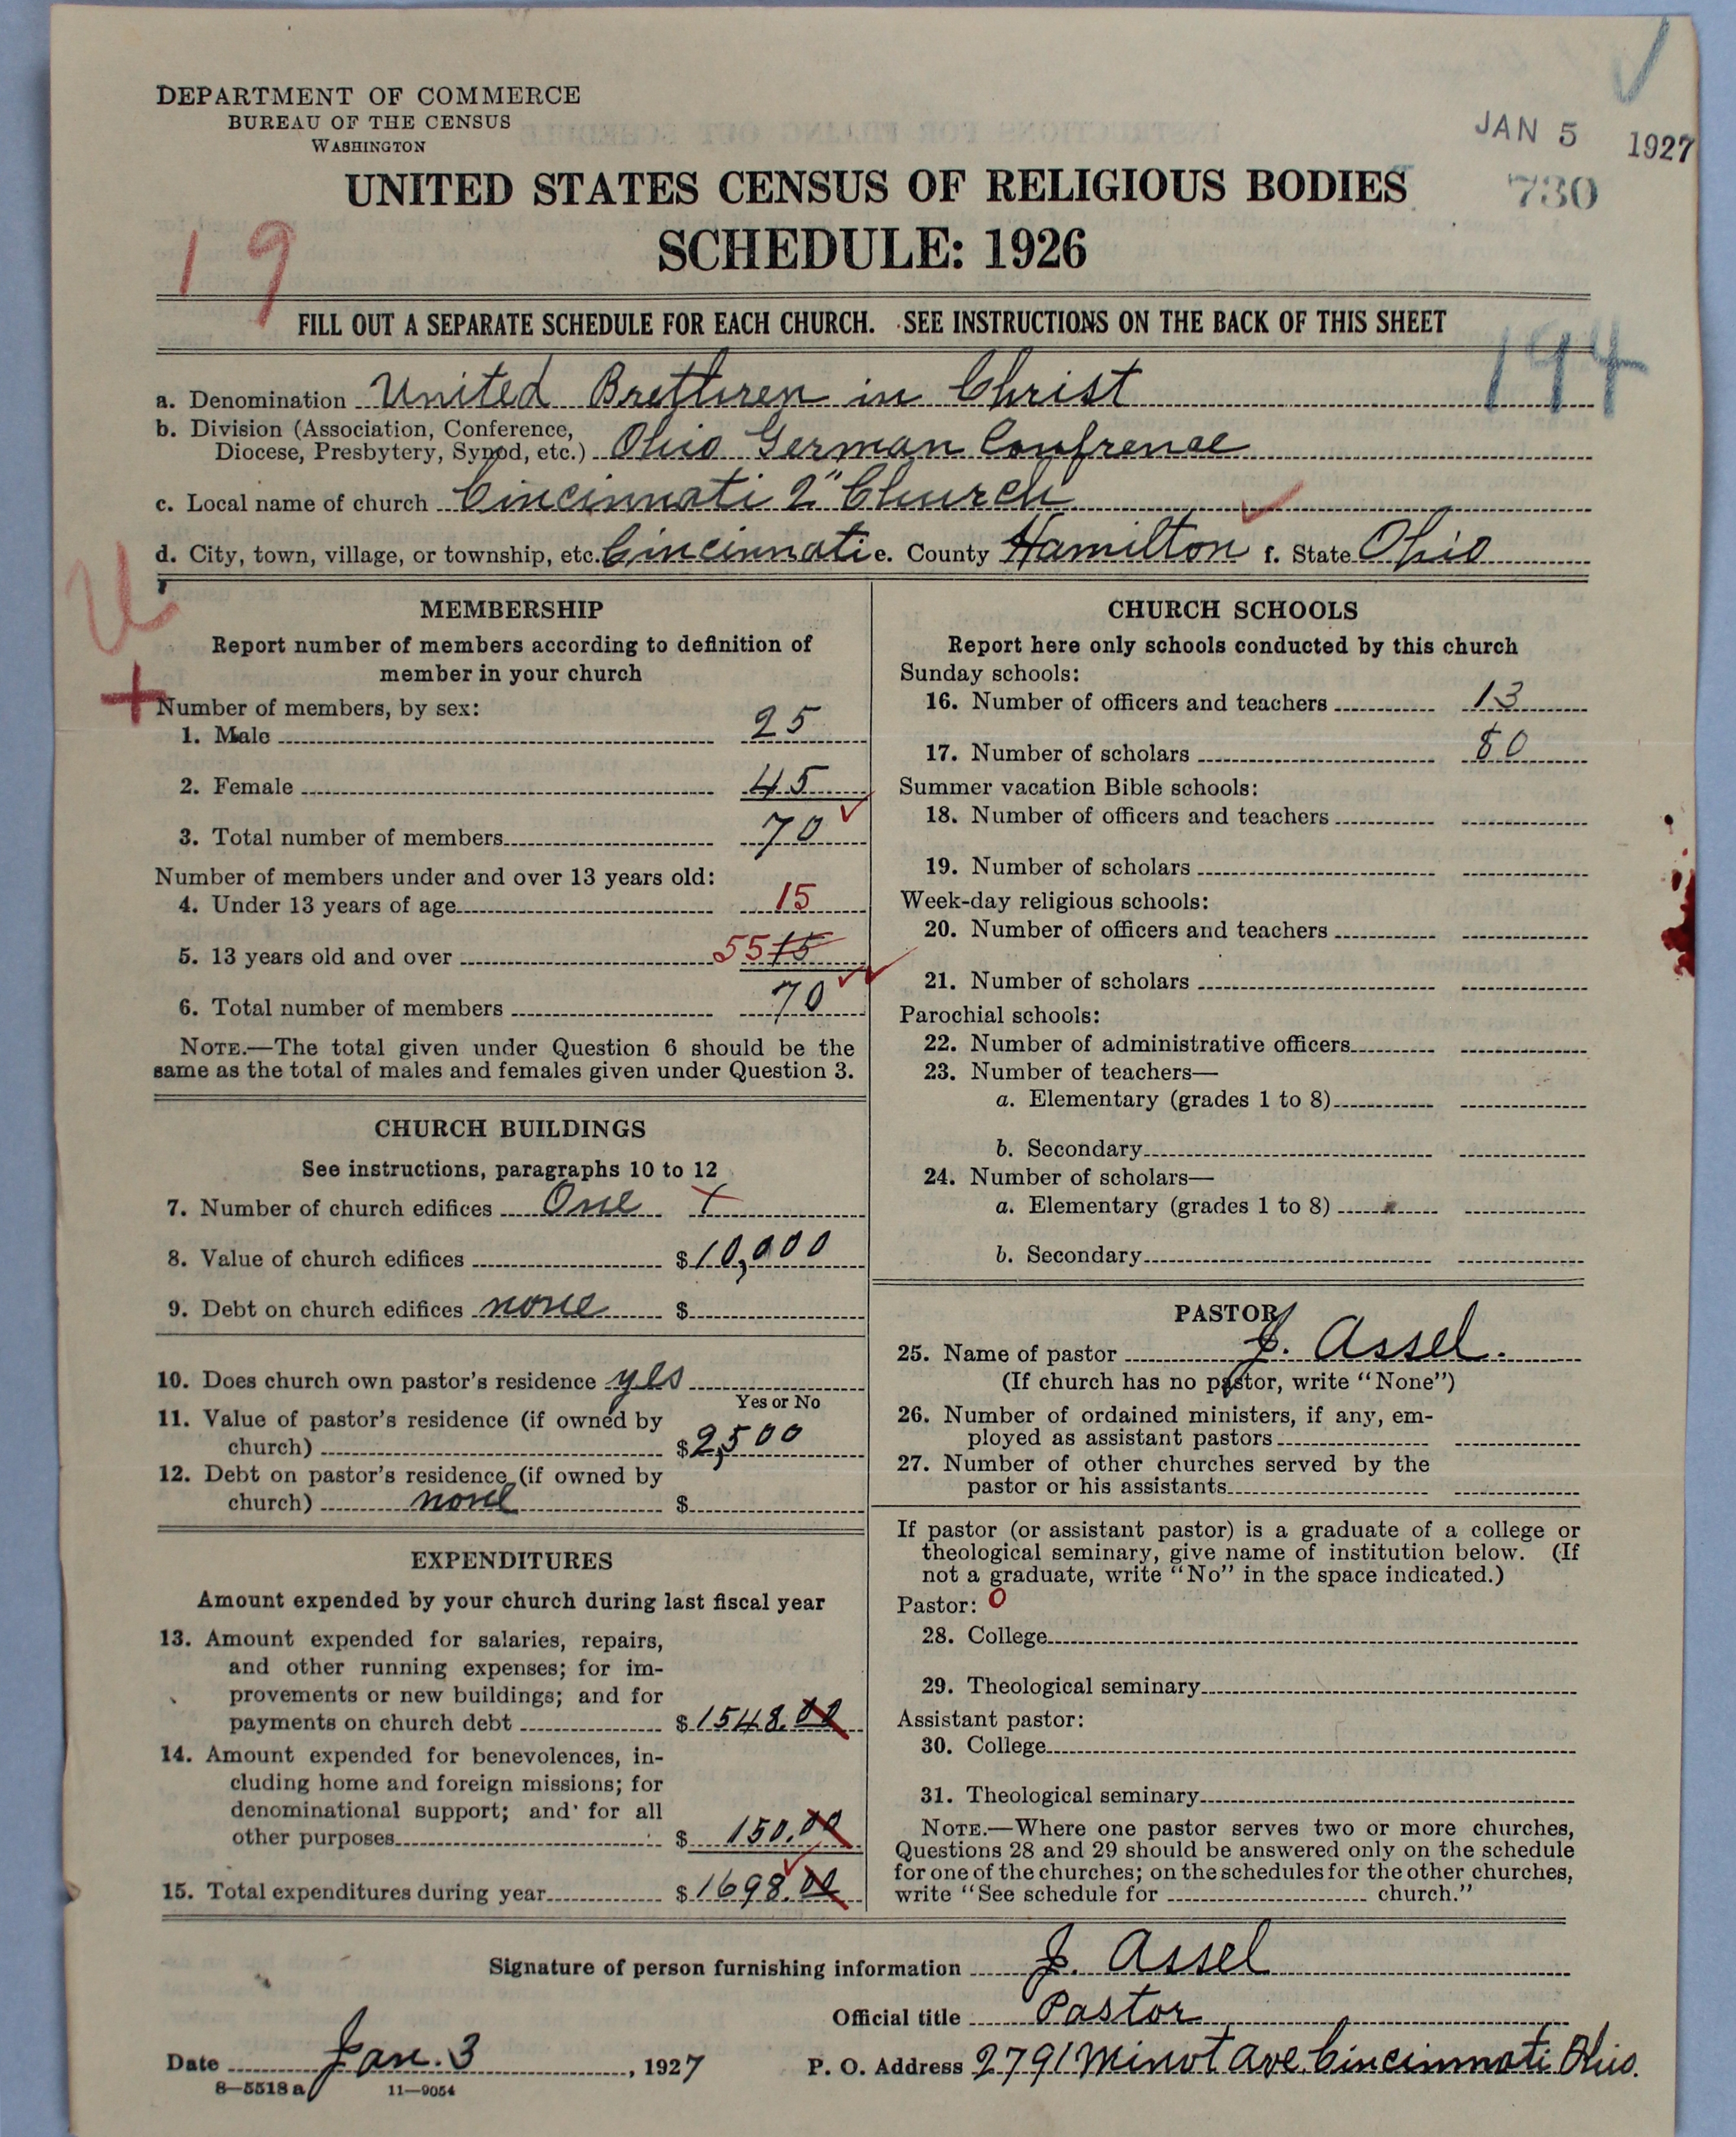 DEPARTMENT OF COMMERCE
BUREAU OF THE CENSUS
WASHINGTON
JAN 5 1927
730
UNITED STATES CENSUS OF RELIGIOUS BODIES
SCHEDULE: 1926
19
FILL OUT A SEPARATE SCHEDULE FOR EACH CHURCH. SEE INSTRUCTIONS ON THE BACK OF THIS SHEET
194
a. Denomination United Brethren in Christ
b. Division (Association, Conference,
Diocese, Presbytery, Synod, etc.) Ohio German Confrence
c. Local name of church Cincinnati 2" Church
d. City, town, village, or township, etc. Cincinnati e. County Hamilton f. State Ohio
MEMBERSHIP
Report number of members according to definition of
member in your church
Number of members, by sex:
1. Male 25
2. Female 45
3. Total number of members 70
Number of members under and over 13 years old:
4. Under 13 years of age 15
5. 13 years old and over 55 15
6. Total number of members 70
NOTE.—The total given under Question 6 should be the
same as the total of males and females given under Question 3.
CHURCH BUILDINGS
See instructions, paragraphs 10 to 12
7. Number of church edifices One 1
8. Value of church edifices $10,000
9. Debt on church edifices none $
10. Does church own pastor's residence yes
Yes or No
11. Value of pastor's residence (if owned by
church) $2,500
12. Debt on pastor's residence (if owned by
church) none $
EXPENDITURES
Amount expended by your church during last fiscal year
13. Amount expended for salaries, repairs,
and other running expenses; for im-
provements or new buildings; and for
payments on church debt $1548.00
14. Amount expended for benevolences, in-
cluding home and foreign missions; for
denominational support; and for all
other purposes $150.00
15. Total expenditures during year $1698.00
CHURCH SCHOOLS
Report here only schools conducted by this church
Sunday schools:
16. Number of officers and teachers 13
17. Number of scholars 80
Summer vacation Bible schools:
18. Number of officers and teachers
19. Number of scholars
Week-day religious schools:
20. Number of officers and teachers
21. Number of scholars
Parochial schools:
22. Number of administrative officers
23. Number of teachers—
a. Elementary (grades 1 to 8)
b. Secondary
24. Number of scholars—
a. Elementary (grades 1 to 8)
b. Secondary
PASTOR
25. Name of pastor J. Assel.
(If church has no pastor, write "None")
26. Number of ordained ministers, if any, em-
ployed as assistant pastors
27. Number of other churches served by the
pastor or his assistants
If pastor (or assistant pastor) is a graduate of a college or
theological seminary, give name of institution below. (If
not a graduate, write "No" in the space indicated.)
Pastor: 0
28. College
29. Theological seminary
Assistant pastor:
30. College
31. Theological seminary
NOTE.—Where one pastor serves two or more churches,
Questions 28 and 29 should be answered only on the schedule
for one of the churches; on the schedules for the other churches,
write "See schedule for church."
Signature of person furnishing information J. Assel
Official title Pastor
Date Jan. 3, 1927 P. O. Address 2791 Minot Ave. Cincinnati Ohio.
8—5518 a 11—9054